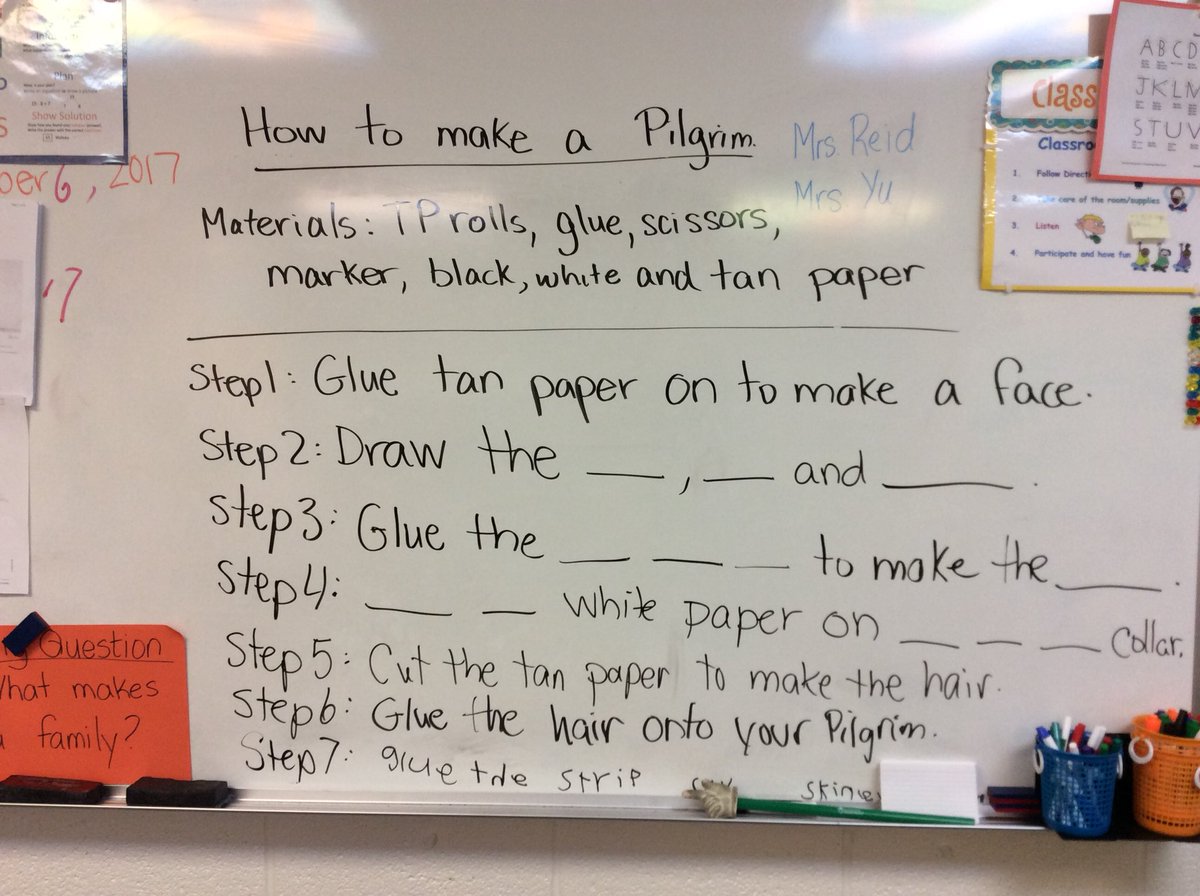 Plan
Show Solution
ber 6, 2017
7
How to make a Pilgrim.
Mrs. Reid
Mrs. Yu
Materials: TP rolls, glue, scissors,
marker, black, white and tan paper
Step 1: Glue tan paper on to make a face.
Step 2: Draw the ___, ___ and ___.
Step 3: Glue the ___ ___ ___ to make the ___.
Step 4: ___ ___ white paper on ___ ___ ___ collar.
Step 5: Cut the tan paper to make the hair.
Step 6: Glue the hair onto your Pilgrim.
Step 7: glue the strip
Question
What makes
a family?
Class
Classro
1. Follow Directi
2. care of the room/supplies
3. Listen
4. Participate and have fun
A B C D
J K L M
S T U V